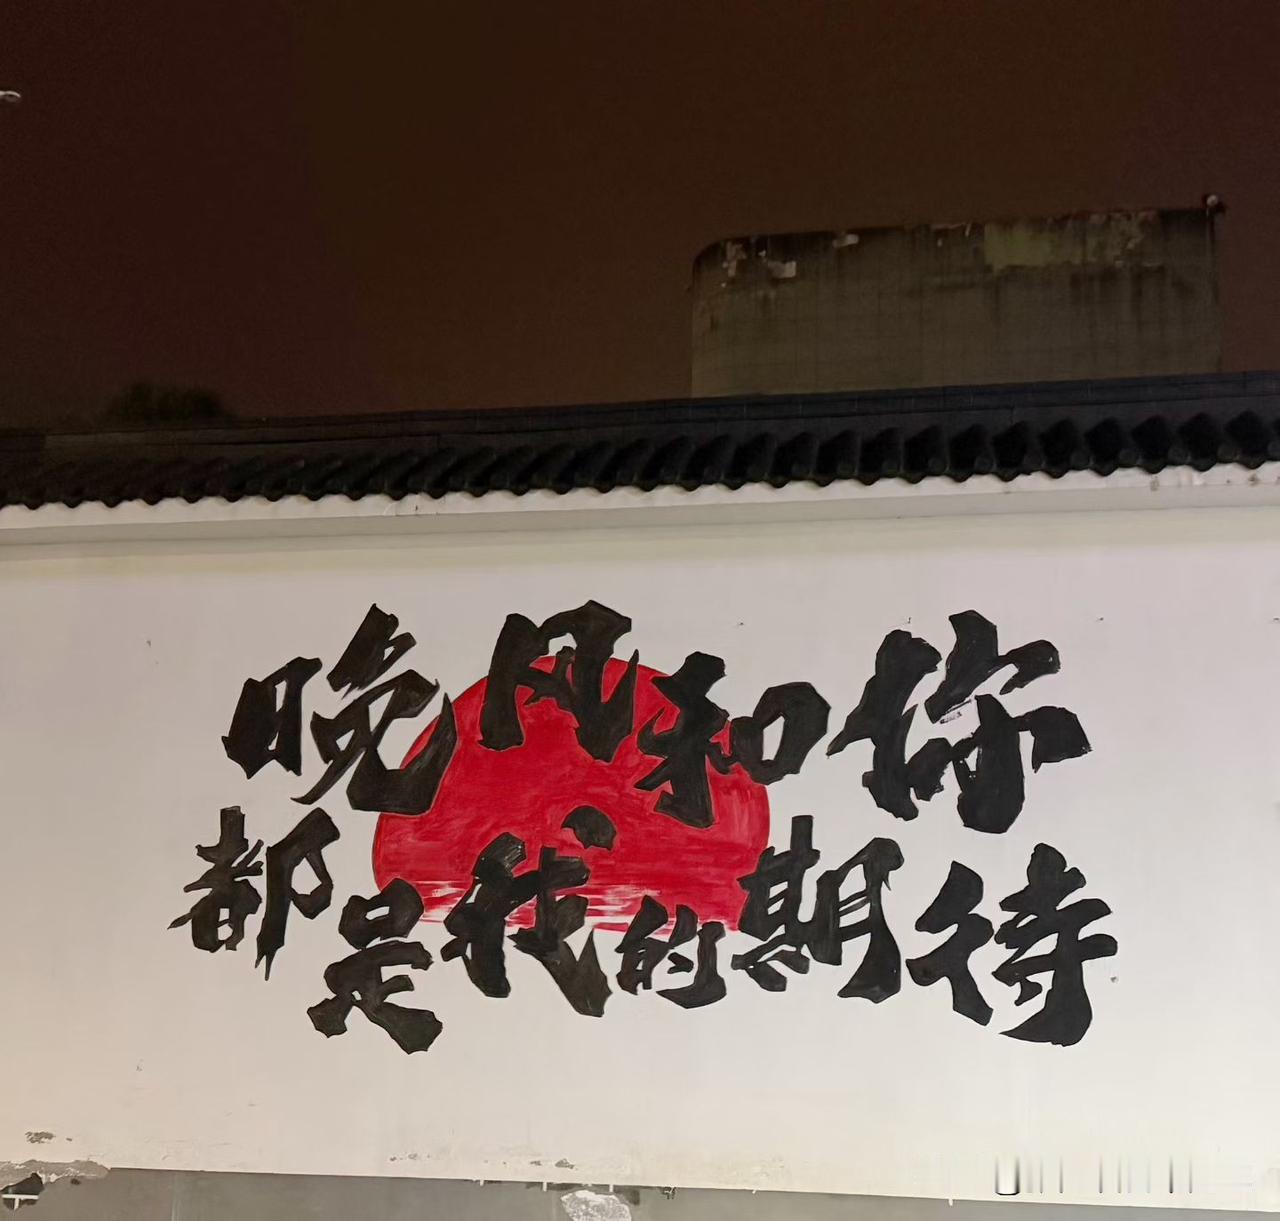 晚风和你
都是我的期待